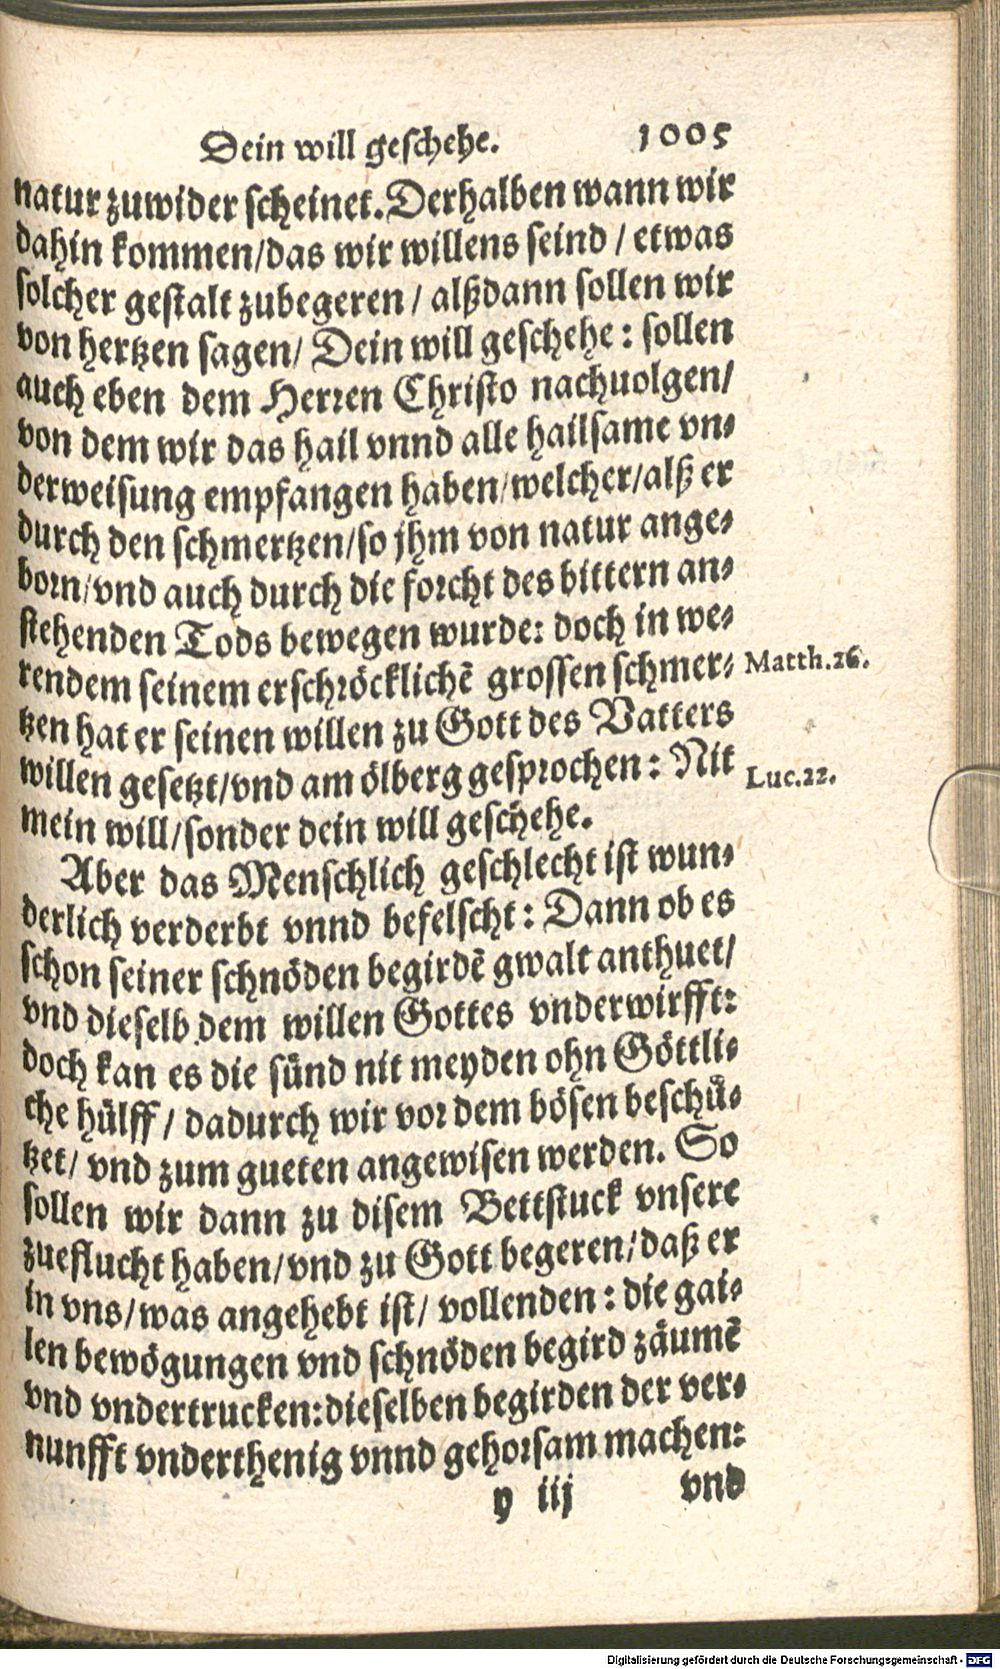 Dein will geschehe. 1005
natur zuwider scheinet. Derhalben wann wir
dahin kommen/das wir willens seind / etwas
solcher gestalt zubegeren / alßdann sollen wir
von hertzen sagen/ Dein will geschehe: sollen
auch eben dem Herren Christo nachuolgen/
von dem wir das hail vnnd alle hailsame vn-
derweisung empfangen haben/welcher/alß er
durch den schmertzen/so jhm von natur ange-
born/vnd auch durch die forcht des bittern an-
stehenden Tods bewegen wurde: doch in we-
rendem seinem erschröcklichē grossen schmer- Matth.26.
tzen hat er seinen willen zu Gott des Vatters
willen gesetzt/vnd am ölberg gesprochen: Nit Luc.22.
mein will/sonder dein will geschehe.
Aber das Menschlich geschlecht ist wun-
derlich verderbt vnnd befelscht: Dann ob es
schon seiner schnöden begirdē gwalt anthuet/
vnd dieselb dem willen Gottes vnderwirfft:
doch kan es die sünd nit meyden ohn Göttli-
che hülff / dadurch wir vor dem bösen beschü-
tzet/ vnd zum gueten angewisen werden. So
sollen wir dann zu disem Bettstuck vnsere
zueflucht haben/vnd zu Gott begeren/daß er
in vns/was angehebt ist/ vollenden: die gai-
len bewögungen vnd schnöden begird zäumē
vnd vndertrucken:dieselben begirden der ver-
nunfft vnderthenig vnnd gehorsam machen:
y iij vnd
Digitalisierung gefördert durch die Deutsche Forschungsgemeinschaft - DFG